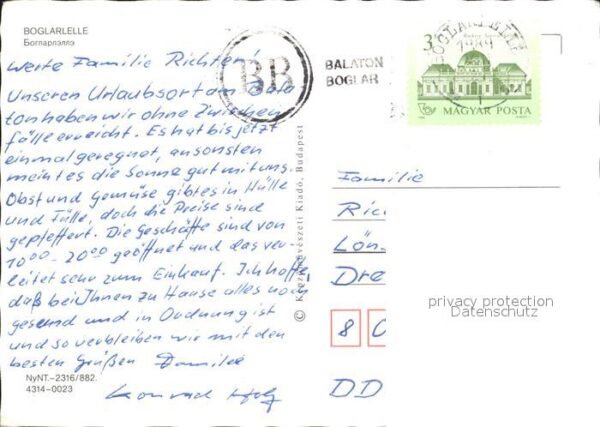 BOGLARLELLE
Богларлэллэ
Werte Familie Richter!
Unseren Urlaubsort am Bala
ton haben wir ohne Zwischen
fälle erreicht. Es hat bis jetzt
einmal geregnet, ansonsten
meint es die Sonne gut mit uns.
Obst und Gemüse gibt es in Hülle
und Fülle, doch die Preise sind
gepfeffert. Die Geschäfte sind von
10⁰⁰ - 20⁰⁰ geöffnet und das ver-
leitet sehr zum Einkauf. Ich hoffe,
daß bei Ihnen zu Hause alles noch
gesund und in Ordnung ist
und so verbleiben wir mit den
besten Grüßen Familie
Konrad
NyNT.–2316/882.
4314–0023
© Képzőművészeti Kiadó, Budapest
BB
BALATON
BOGLÁR
BOGLÁRLELLE
1989
3 Ft
MAGYAR POSTA
Familie
Ric
Lön
Dre
8 0
DD
privacy protection
Datenschutz